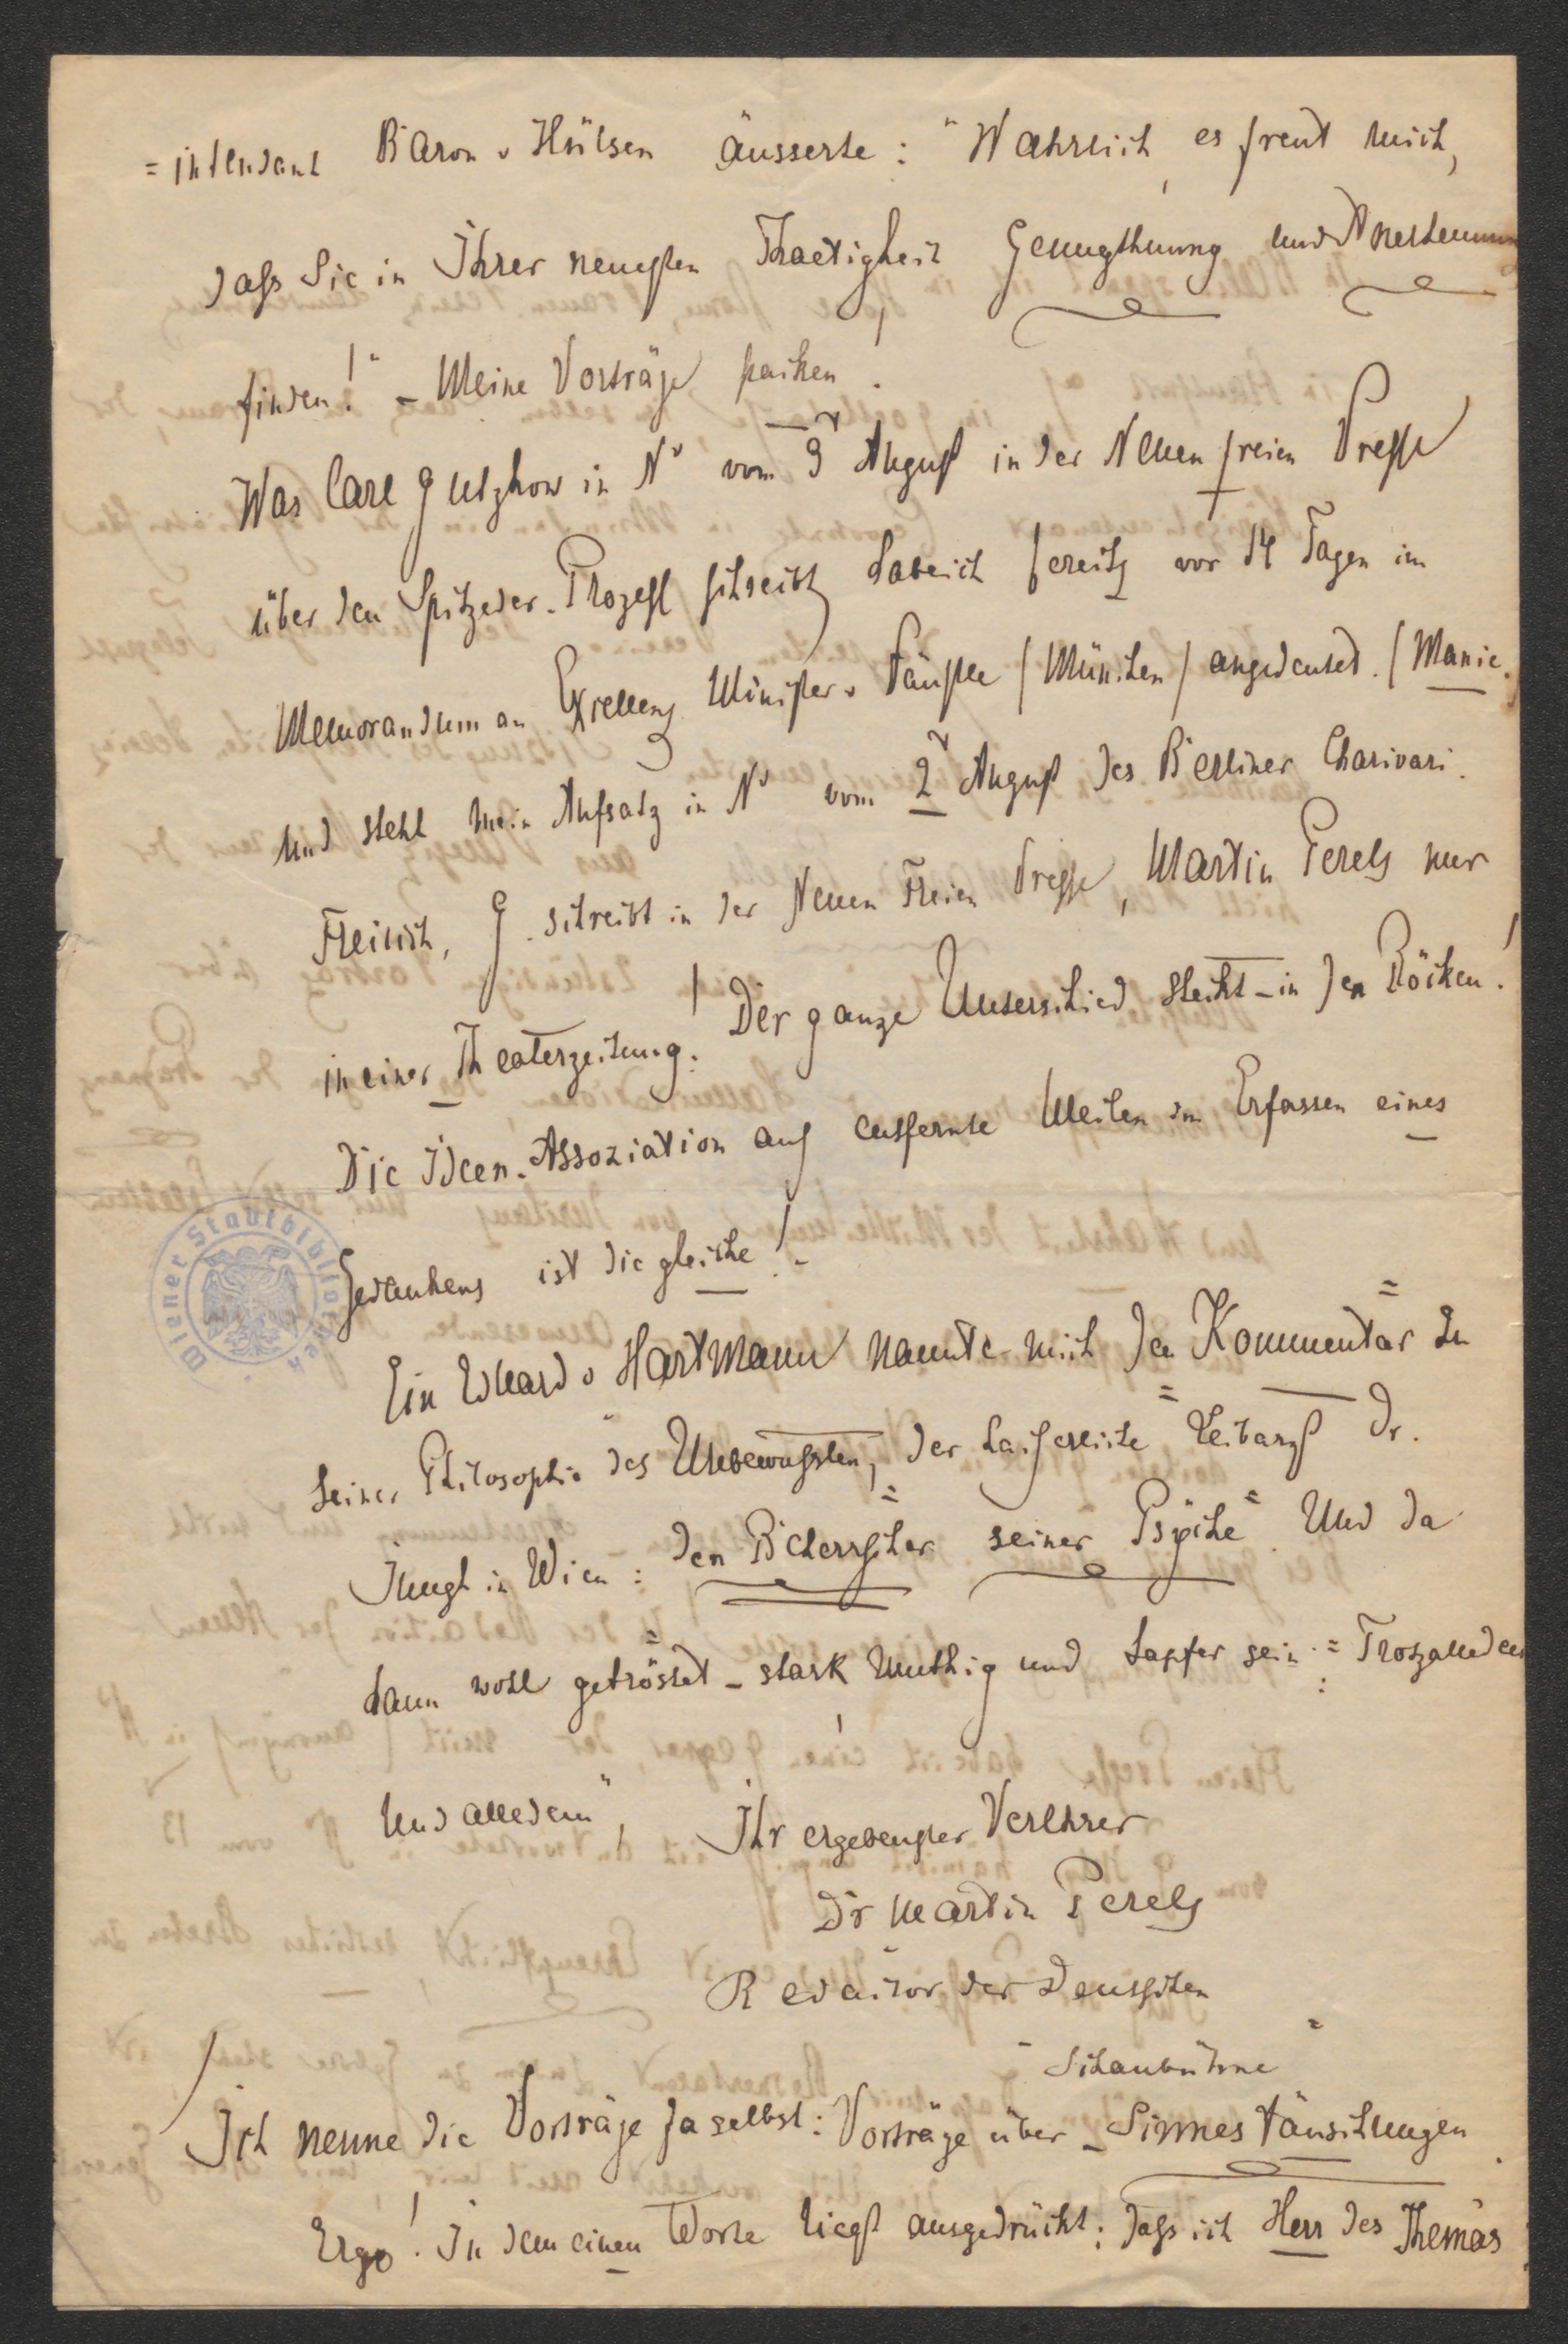 =intendant Baron v Hülsen äusserte: "Wahrlich, es freut mich,
dass Sie in Ihrer neuesten Thaetigkeit Genugthuung und Anerkennung
finden!" – Meine Vorträge packen.
Was Carl Gutzkow in Nr vom 9t August in der Neuen freien Presse
über den Spitzeder-Prozess schreibt, habe ich bereits vor 14 Tagen im
Memorandum an Exellenz Minister v Fäustle (München) angedeutet. (Manie.)
Und steht mein Aufsatz in Nr vom 2t August des Berliner Charivari.
Freilich, G. schreibt in der Neuen Freien Presse, Martin Perels nur
in einer Theaterzeitung! Der ganze Unterschied steckt – in den Röcken!
Die Ideen-Assoziation auf entfernte Meilen im Erfassen eines
Gedankens ist die gleiche! –
Ein Eduard v Hartmann nannte mich den "Kommentar" zu
seiner Philosophie des "Unbewussten", der kaiserliche Leibarzt Dr.
in Wien: "den Beherrscher seiner Psyche". Und da
kann wohl getröstet – stark muthig und tapfer sein: "Trotzalledem
und alledem",
Ihr ergebenster Verehrer
Dr Martin Perels
Redactor der "Deutschen
Schaubühne"
Ich nenne die Vorträge ja selbst: Vorträge über – Sinnestäuschungen.
Ergo! In dem einen Worte liegt ausgedrückt: dass ich Herr des Themas
Wiener Stadtbibliothek